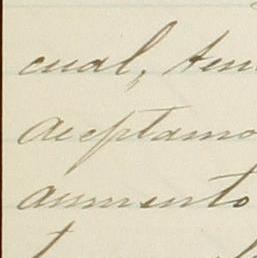 cual, ten
aceptamo
aumento